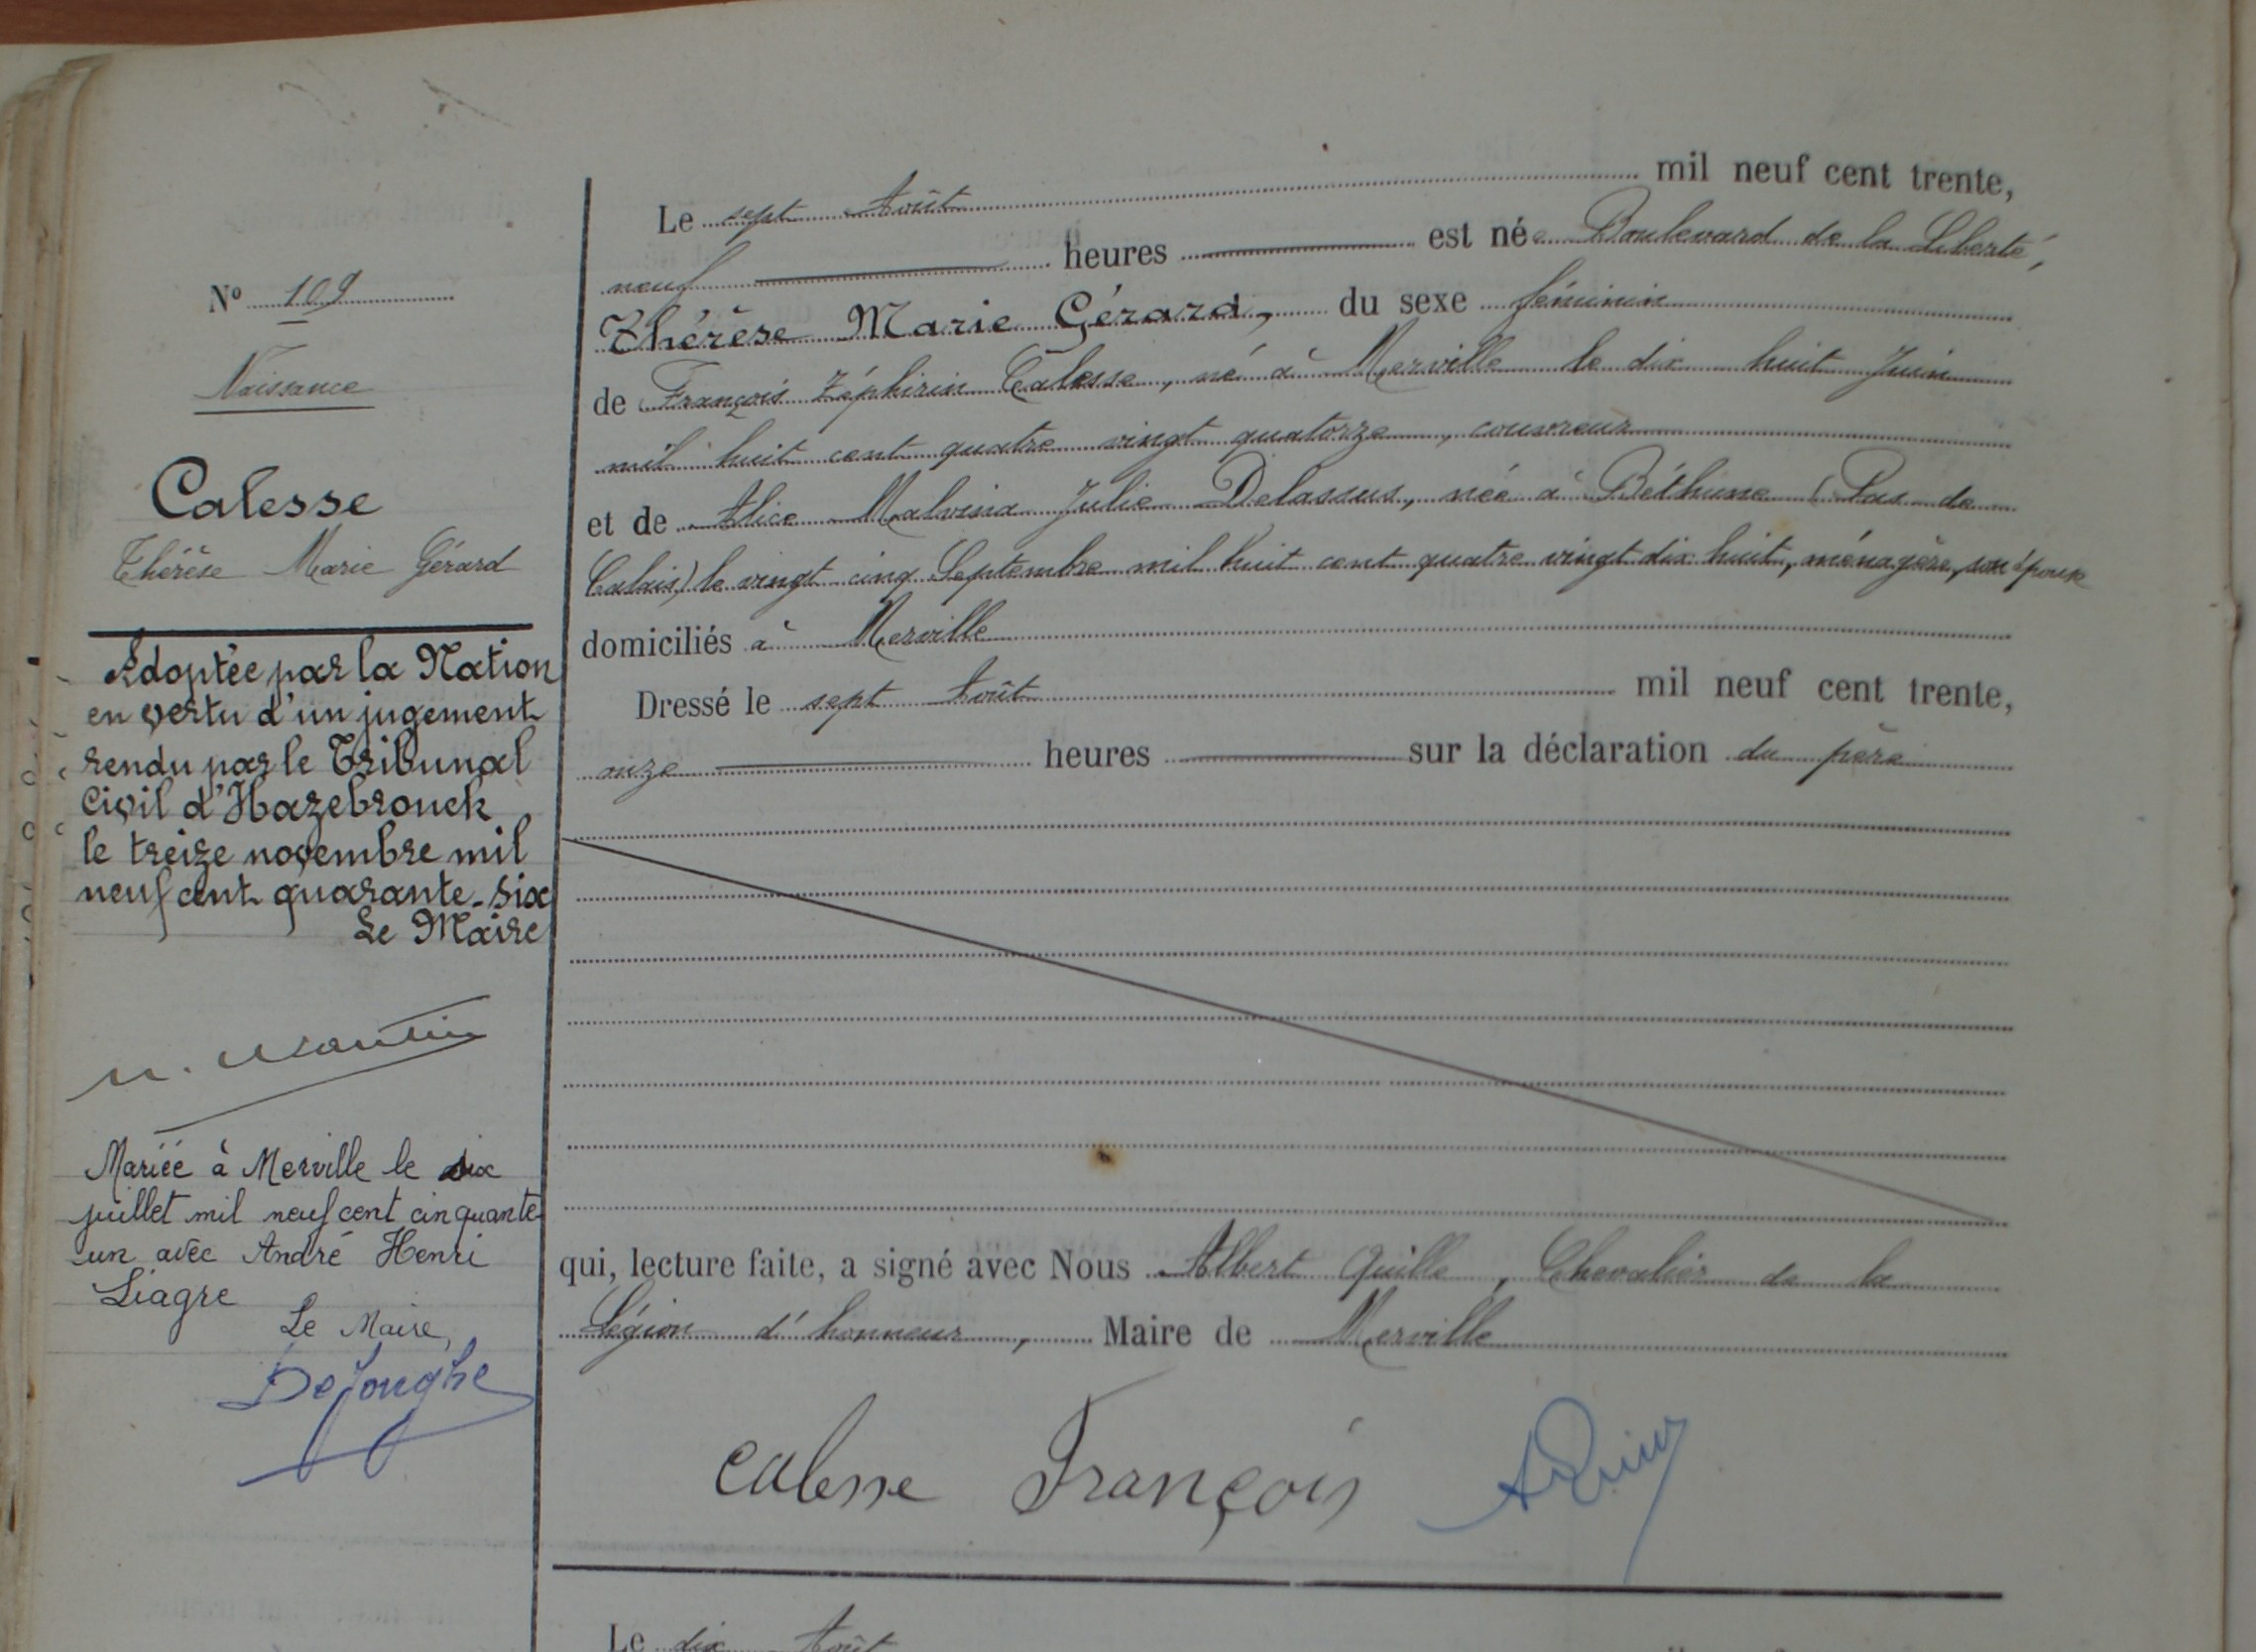 N° 109
Naissance
Calesse
Thérèse Marie Gérard
Adoptée par la Nation
en vertu d'un jugement
rendu par le Tribunal
Civil d'Hazebrouck
le treize novembre mil
neuf cent quarante-six
Le Maire
Mariée à Merville le dix
juillet mil neuf cent cinquante
un avec André Henri
Liagre
Le Maire,
Dejonghe
Le sept Août mil neuf cent trente,
neuf heures est née Boulevard de la Liberté,
Thérèse Marie Gérard, du sexe féminin
de François Zéphirin Calesse, né à Merville le dix huit Juin
mil huit cent quatre vingt quatorze, couvreur
et de Alice Malvina Julie Delassus, née à Béthune (Pas de
Calais) le vingt cinq Septembre mil huit cent quatre vingt dix huit, ménagère, son épouse
domiciliés à Merville
Dressé le sept Août mil neuf cent trente,
onze heures sur la déclaration du père
qui, lecture faite, a signé avec Nous Albert Quille, Chevalier de la
Légion d'honneur, Maire de Merville
Calesse François
Le dix Août